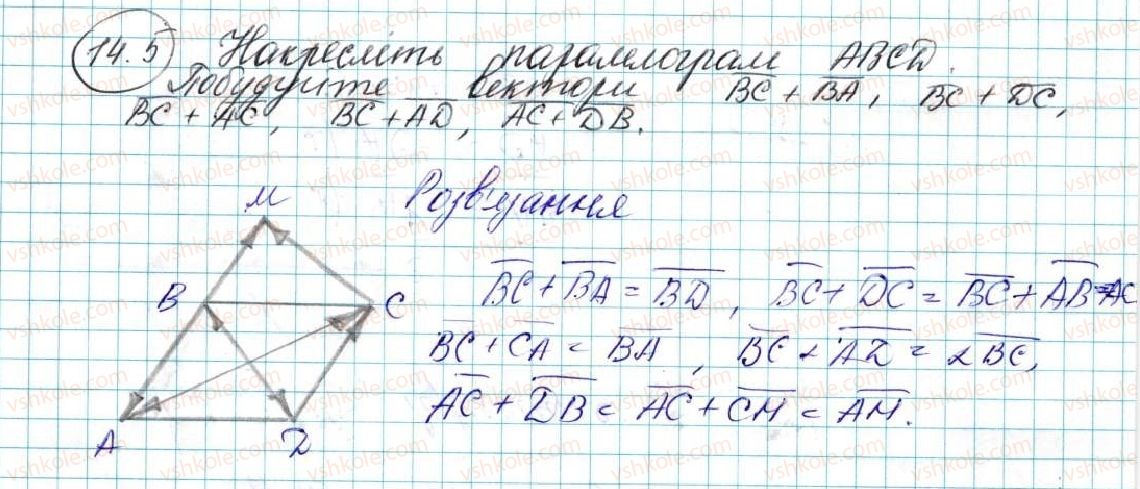 14.5 Накресліть паралелограм ABCD.
Побудуйте вектори BC + BA, BC + DC,
BC + AC, BC + AD, AC + DB.
Розв'язання
M
B
C
A
D
BC + BA = BD, BC + DC = BC + AB = AC
BC + CA = BA, BC + AD = 2BC,
AC + DB = AC + CM = AM.
vshkole.com